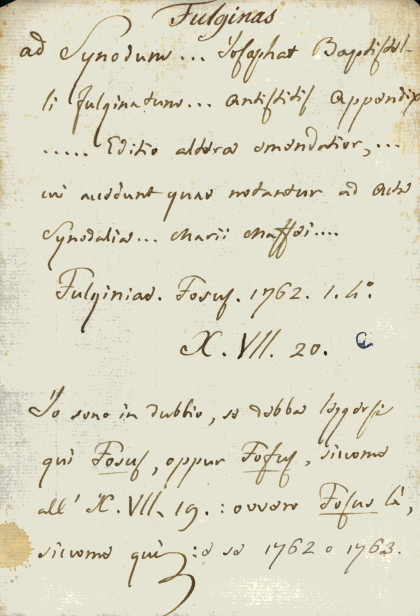 Fulginas
ad Synodum ... Josaphat Baptistel-
li fulginatum ... Antistitis Appendix
..... Editio altera emendatior, ...
cui accedunt quae notantur ad Acta
Synodalia ... Marii Maffei ....
Fulginiae. Fosuf. 1762. 1. 4.º
X. VII. 20.
Io sono in dubbio, se debba leggersi
quì Fosuf, oppur Fofuf, siccome
all' X. VII. 19. : ovvero Fofus là,
siccome quì : e se 1762 o 1763.